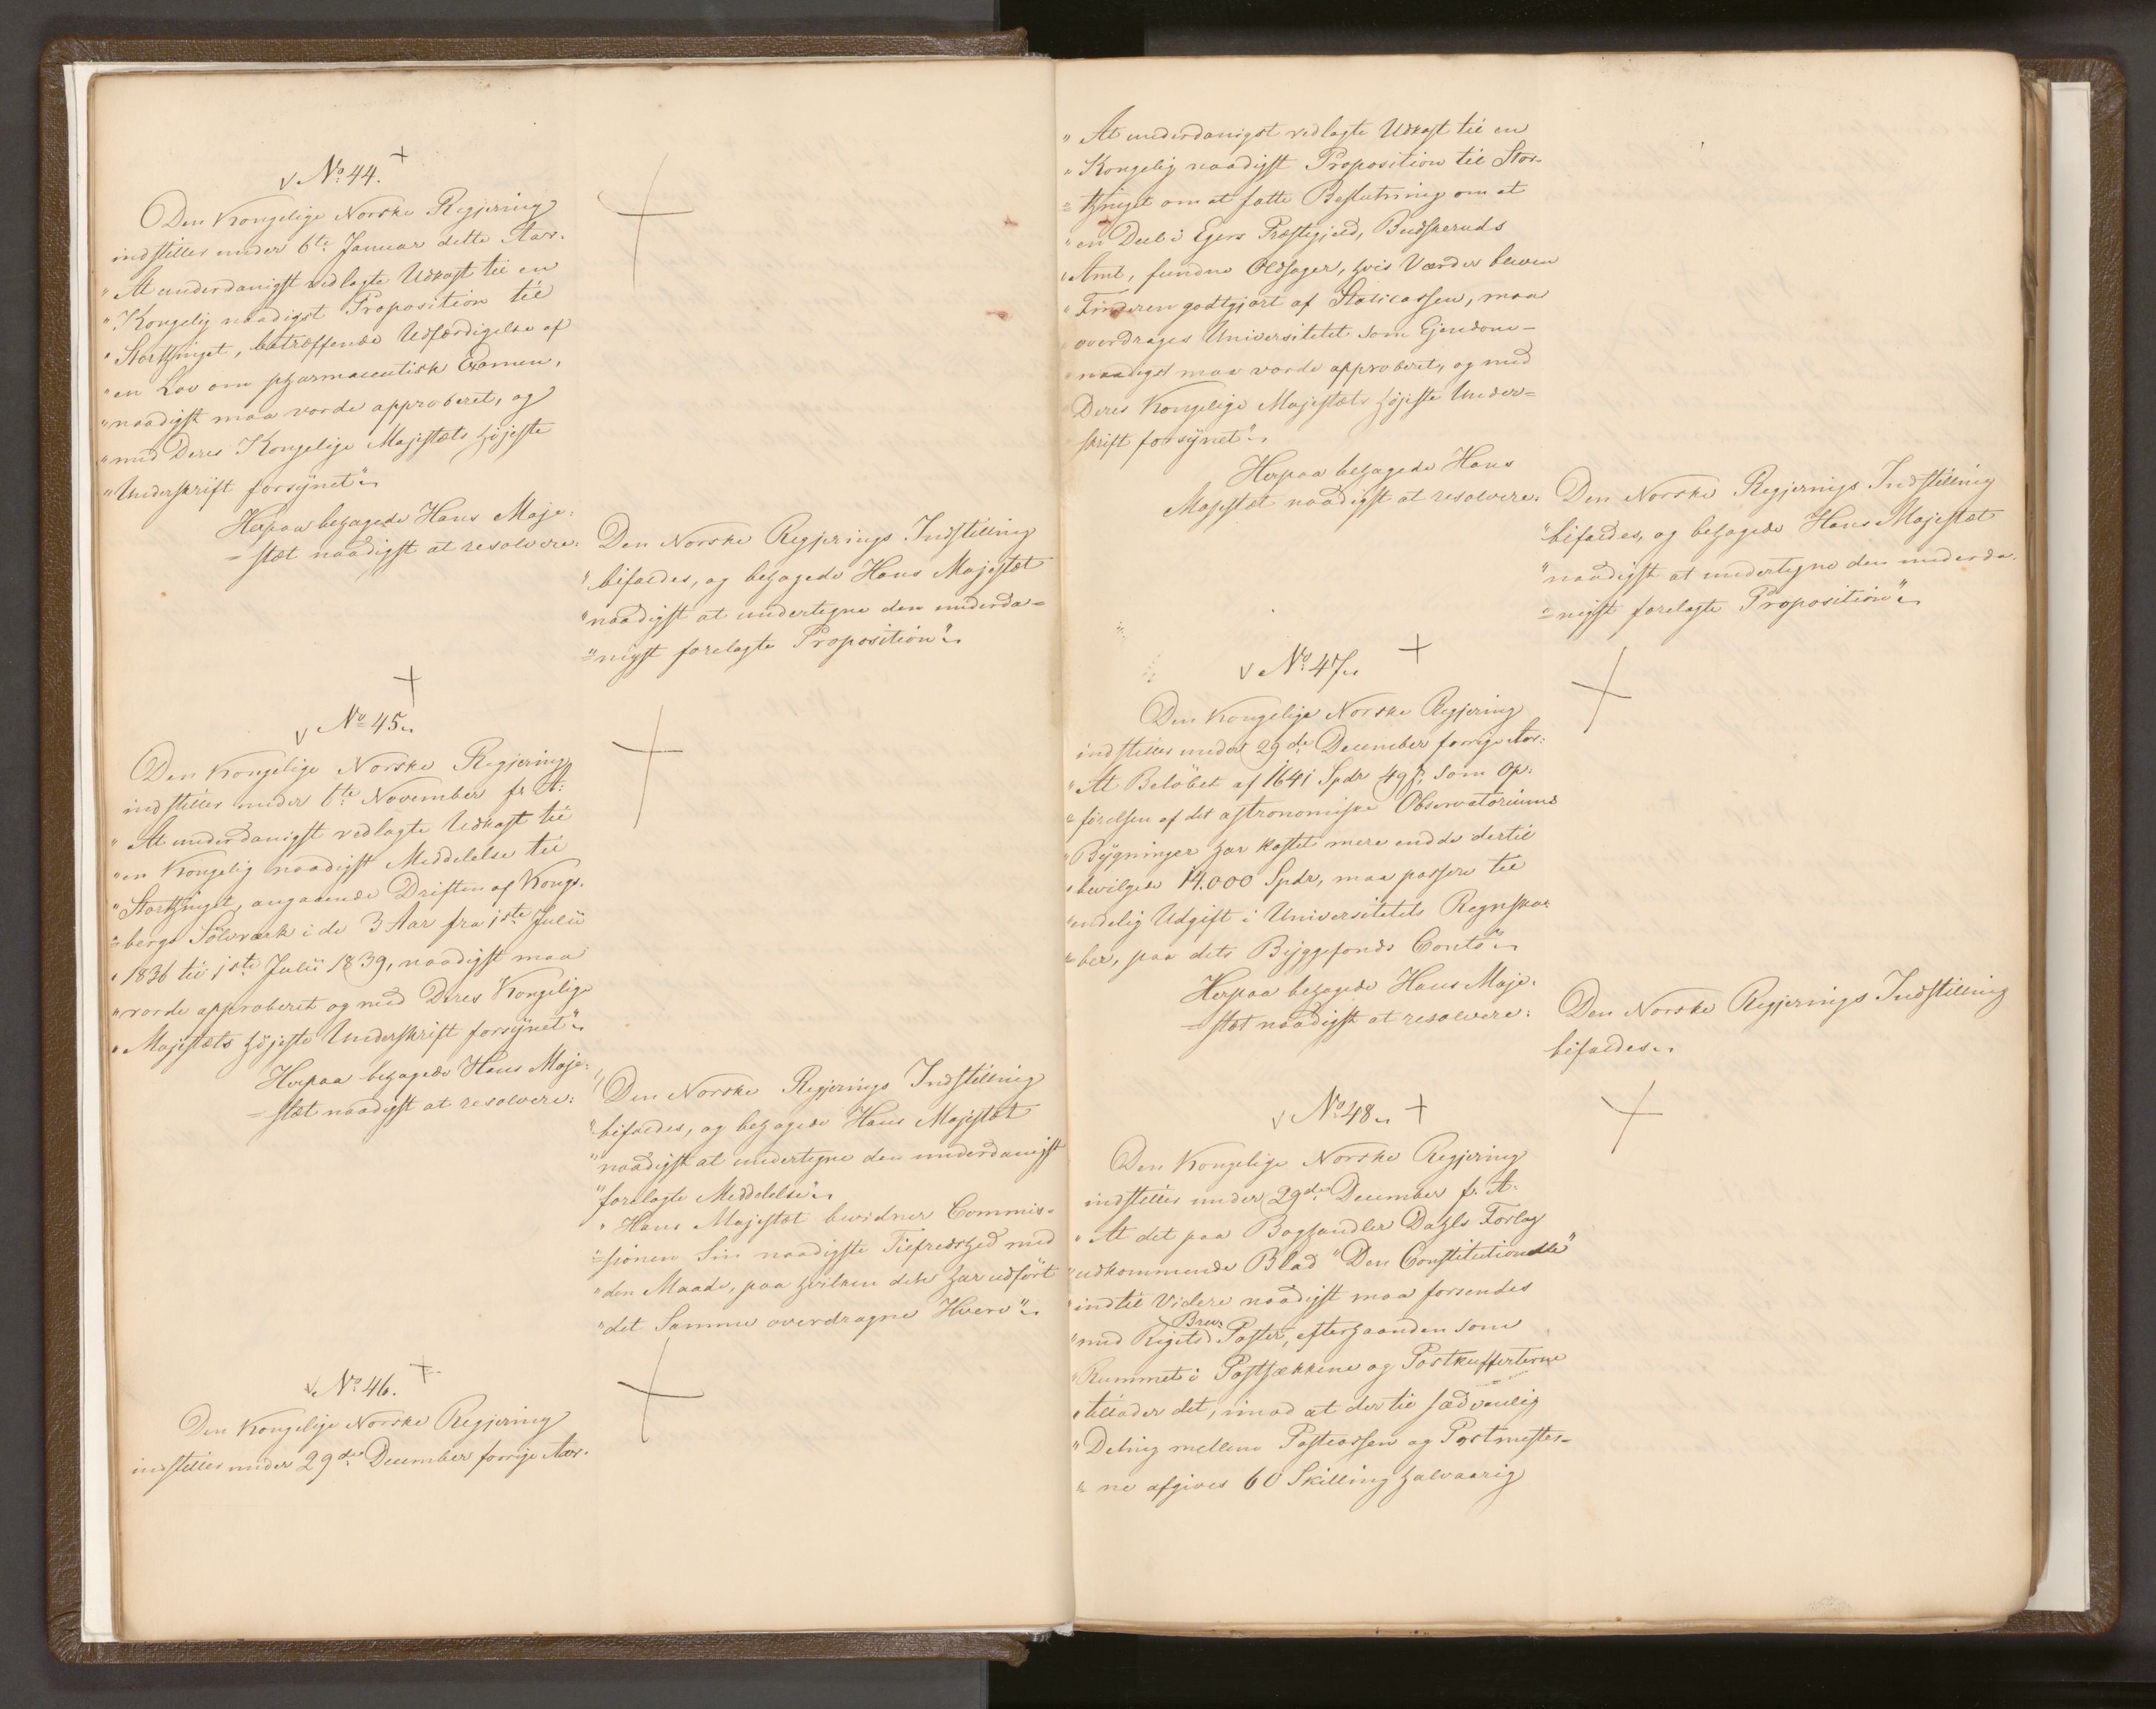 No: 44.
Den Kongelige Norske Regjering
indstiller under 6te Januar dette Aar.
"At underdanigst vedlagte Udkast til en
"Kongelig naadigst Proposition til
"Storthinget, betræffende Udfærdigelse af
"en Lov om pharmaceutisk Examen,
"naadigst maa vorde approberet, og
"med Deres Kongelige Majestæts höjeste
"Underskrift forsynet".
Herpaa behagede Hans Maje-
=stæt naadigst at resolvere:
Den Norske Regjerings Indstilling
"bifaldes, og behagede Hans Majestæt
"naadigst at undertegne den underda=
"=nigst forelagte Proposition".
No 45.
Den Kongelige Norske Regjering
indstiller under November f. A:
"At underdanigst vedlagte Udkast til
"en Kongelig naadigst Meddelelse til
"Storthinget, angaaende Driften af Kongs-
"=bergs Sölvværk i de 3 Aar fra 1ste Julii
"1836 til 1ste Julii 1839, naadigst maa
"vorde approberet og med Deres Kongelige
"Majestæts höjeste Underskrift forsynet".
Herpaa behagede Hans Maje-
=stæt naadigst at resolvere:
"Den Norske Regjerings Indstilling
"bifaldes, og behagede Hans Majestæt
"naadigst at undertegne den underdanigst
"forelagte Meddelelse".
"Hans Majestæt bevidner Commis-
"=sionen Sin naadigste Tilfredshed med
"den Maade, paa hvilken den har udfört
"det Samme overdragne Hverv".
No: 46.
Den Kongelige Norske Regjering
indstiller under 29de December forrige Aar.
"At underdanigst vedlagte Udkast til en
"Kongelig naadigst Proposition til Stor-
"=thinget om at fatte Beslutning om at
"en Deel i Egers Præstegjeld, Budskeruds
"Amt, fundne Oldsager, hvis Værdie bleven
"Finderen godtgjort af Statscassen, maa
"overdrages Universitetet som Ejendom-
"naadigst maa vorde approberet, og med
Deres Kongelige Majestæts höjeste Under=
skrift forsynet".
Herpaa behagede Hans
Majestæt naadigst at resolvere:
Den Norske Regjerings Indstilling
"bifaldes, og behagede Hans Majestæt
"naadigst at undertegne den underda-
"=nigst forelagte Proposition".
No: 47.
Den Kongelige Norske Regjering
indstiller under 29de December forrige Aar:
"At Belöbet af 1641 Spdr 49 ß, som Op-
"=förelsen af det astronomiske Observatoriums
"Bygninger har kostet mere end de dertil
"bevilgede 14.000 Spdr, maa passere til
"endelig Udgift i Universitetets Regnska-
"=ber, paa dets Byggefonds Conto".
Herpaa behagede Hans Maje-
=stæt naadigst at resolvere:
Den Norske Regjerings Indstilling
bifaldes.
No: 48.
Den Kongelige Norske Regjering
indstiller under 29de December f. A.
"At det paa Boghandler Dahls Forlag
"udkommende Blad "Den Constitutionelle"
"indtil Videre naadigst maa forsendes
Brev-
"med Rigets Poster, efterhaanden som
"Rummet i Postsækkene og Postkufferterne
"tillader det, imod at der til sædvanlig
"Deling mellem Postcassen og Postmester-
"=ne afgives 60 Skilling halvaarig